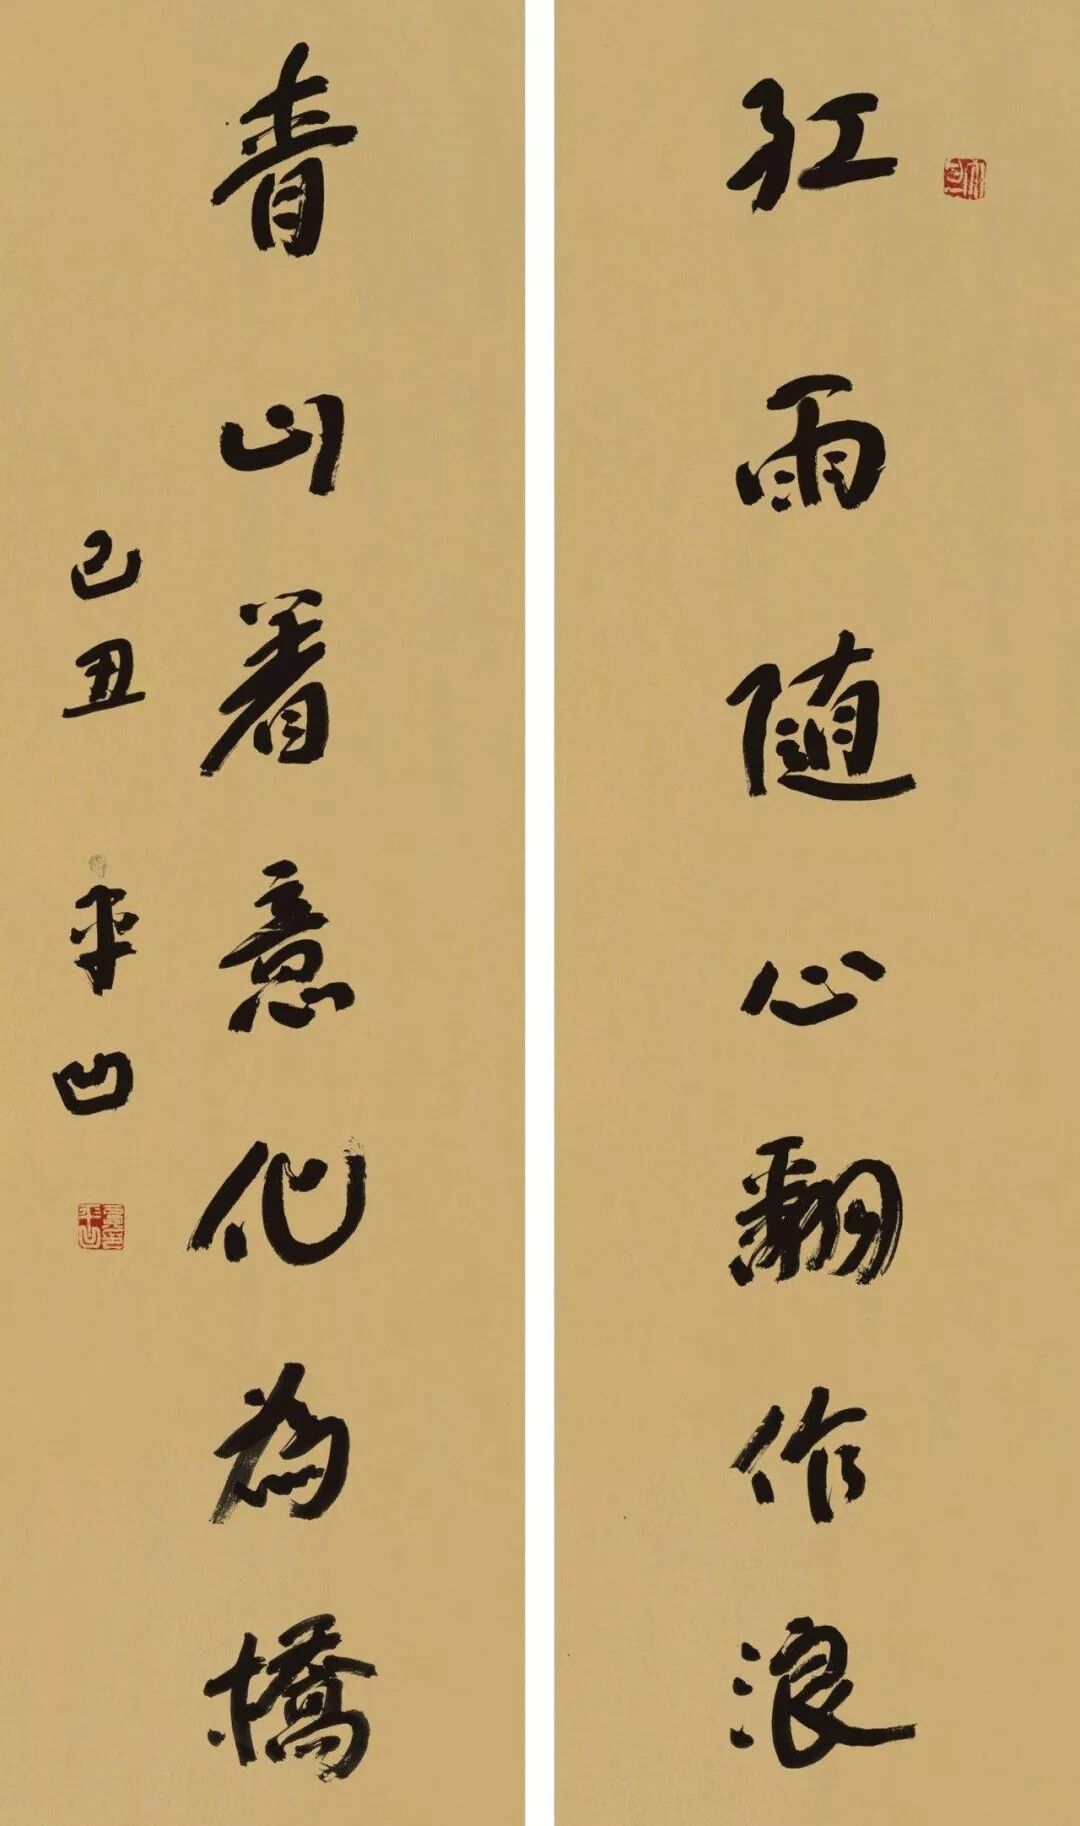 红雨随心翻作浪
青山着意化為橋
己丑 平凹